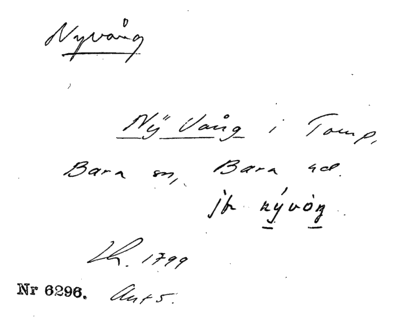 Nyvång
Nÿ Vång i Tomp,
Bara sn, Bara hd.
jfr nývòŋ
Lh. 1799
Nr 6296. Ant 5.